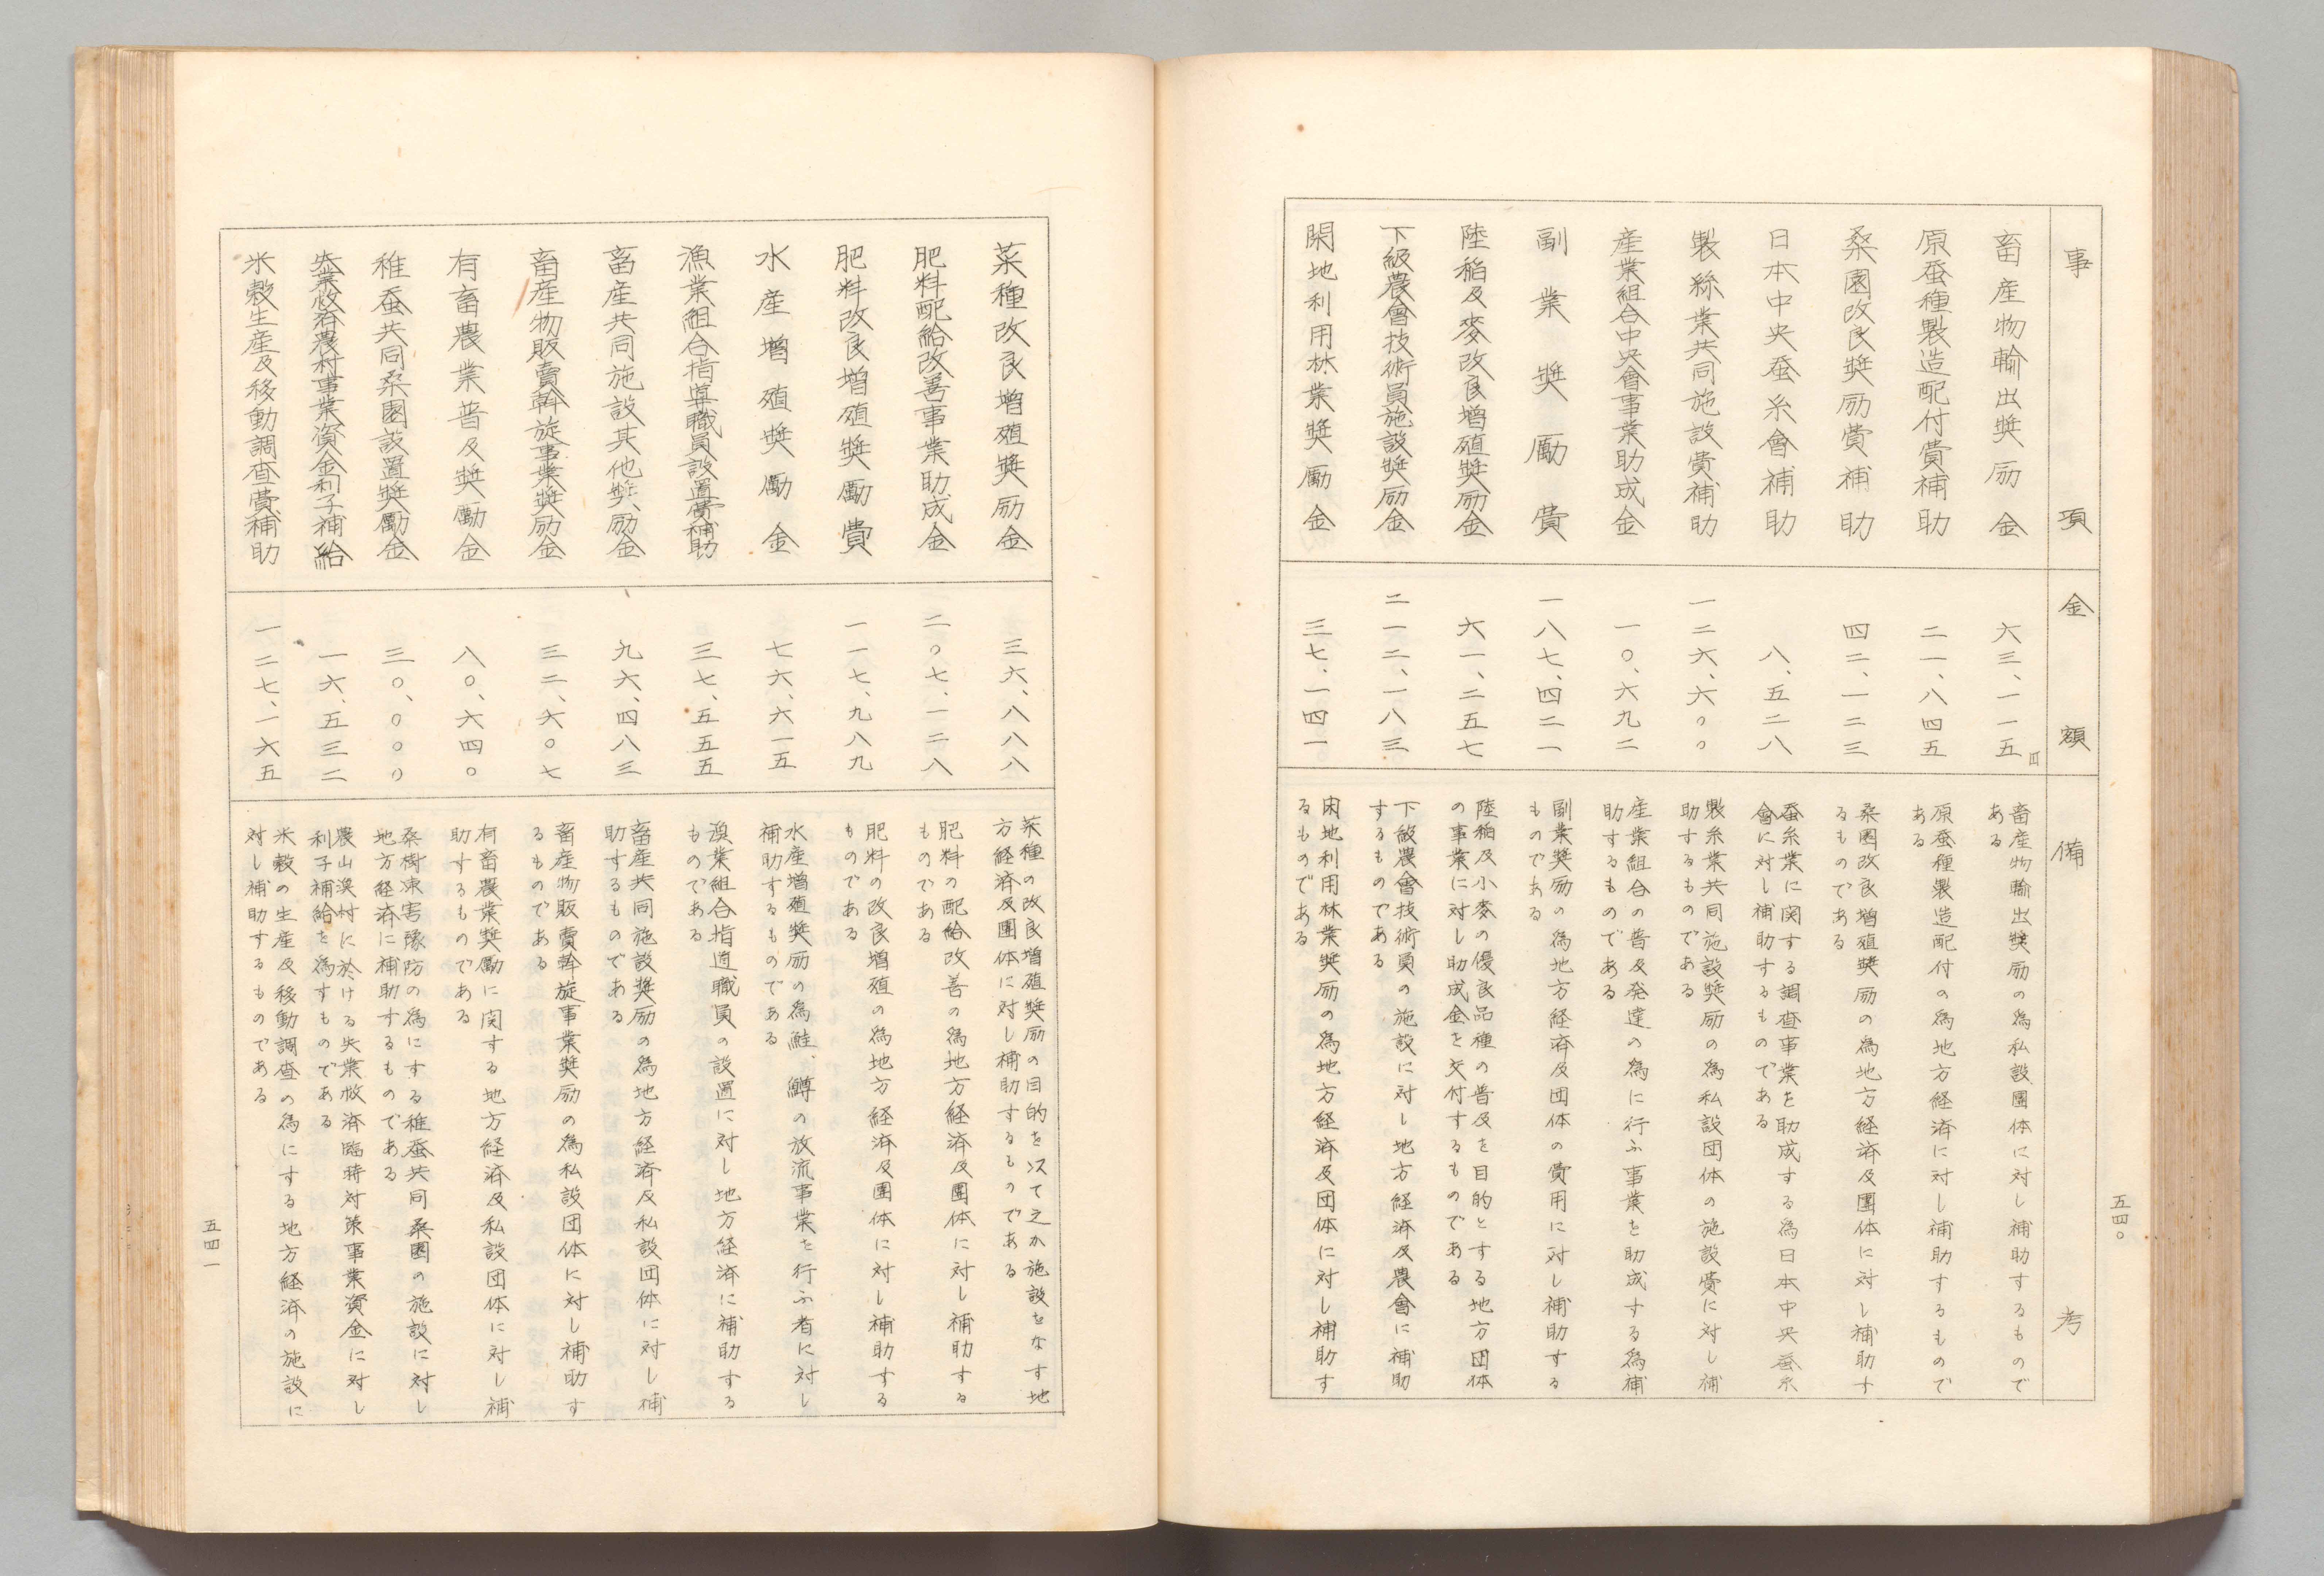 五四〇
事項
金額
備考
畜産物輸出奨励金
六三、一一五
円
畜産物輸出奨励の為私設團体に対し補助するもので
ある
原蚕種製造配付費補助
二一、八四五
原蚕種製造配付の為地方経済に対し補助するもので
ある
桑園改良奨励費補助
四二、一二三
桑園改良増殖奨励の為地方経済及團体に対し補助す
るものである
日本中央蚕糸會補助
八、五二八
蚕糸業に関する調査事業を助成する為日本中央蚕糸
會に対し補助するものである
製絲業共同施設費補助
一二六、六〇〇
製糸業共同施設奨励の為私設団体の施設費に対し補
助するものである
産業組合中央會事業助成金
一〇、六九二
産業組合の普及発達の為に行ふ事業を助成する為補
助するものである
副業奨勵費
一八七、四二一
副業奨励の為地方経済及団体の費用に対し補助する
ものである
陸稲及麥改良増殖奨励金
六一、二五七
陸稲及小麥の優良品種の普及を目的とする地方団体
の事業に対し助成金を交付するものである
下級農會技術員施設奨励金
二一二、一八三
下級農會技術員の施設に対し地方経済及農會に補助
するものである
閑地利用林業奨勵金
三七、一四一
閑地利用林業奨励の為地方経済及団体に対し補助す
るものである
菜種改良増殖奨励金
三六、八八八
菜種の改良増殖奨励の目的を以て之か施設をなす地
方経済及團体に対し補助するものである
肥料配給改善事業助成金
二〇七、一二八
肥料の配給改善の為地方経済及團体に対し補助する
ものである
肥料改良増殖奨勵費
一一七、九八九
肥料の改良増殖の為地方経済及團体に対し補助する
ものである
水産増殖奨勵金
七六、六一五
水産増殖奨励の為鮭、鱒の放流事業を行ふ者に対し
補助するものである
漁業組合指導職員設置費補助
三七、五五五
漁業組合指道職員の設置に対し地方経済に補助する
ものである
畜産共同施設其他奨励金
九六、四八三
畜産共同施設奨励の為地方経済及私設団体に対し補
助するものである
畜産物販賣斡旋事業奨励金
三二、六〇七
畜産物販賣斡旋事業奨励の為私設団体に対し補助す
るものである
有畜農業普及奨勵金
八〇、六四〇
有畜農業奨勵に関する地方経済及私設団体に対し補
助するものである
稚蚕共同桑園設置奨勵金
三〇、〇〇〇
桑樹凍害豫防の為にする稚蚕共同桑園の施設に対し
地方経済に補助するものである
失業救済農村事業資金利子補給
一六、五三二
農山漁村に於ける失業救済臨時対策事業資金に対し
利子補給を為すものである
米穀生産及移動調査費補助
一二七、一六五
米穀の生産及移動調査の為にする地方経済の施設に
対し補助するものである
五四一